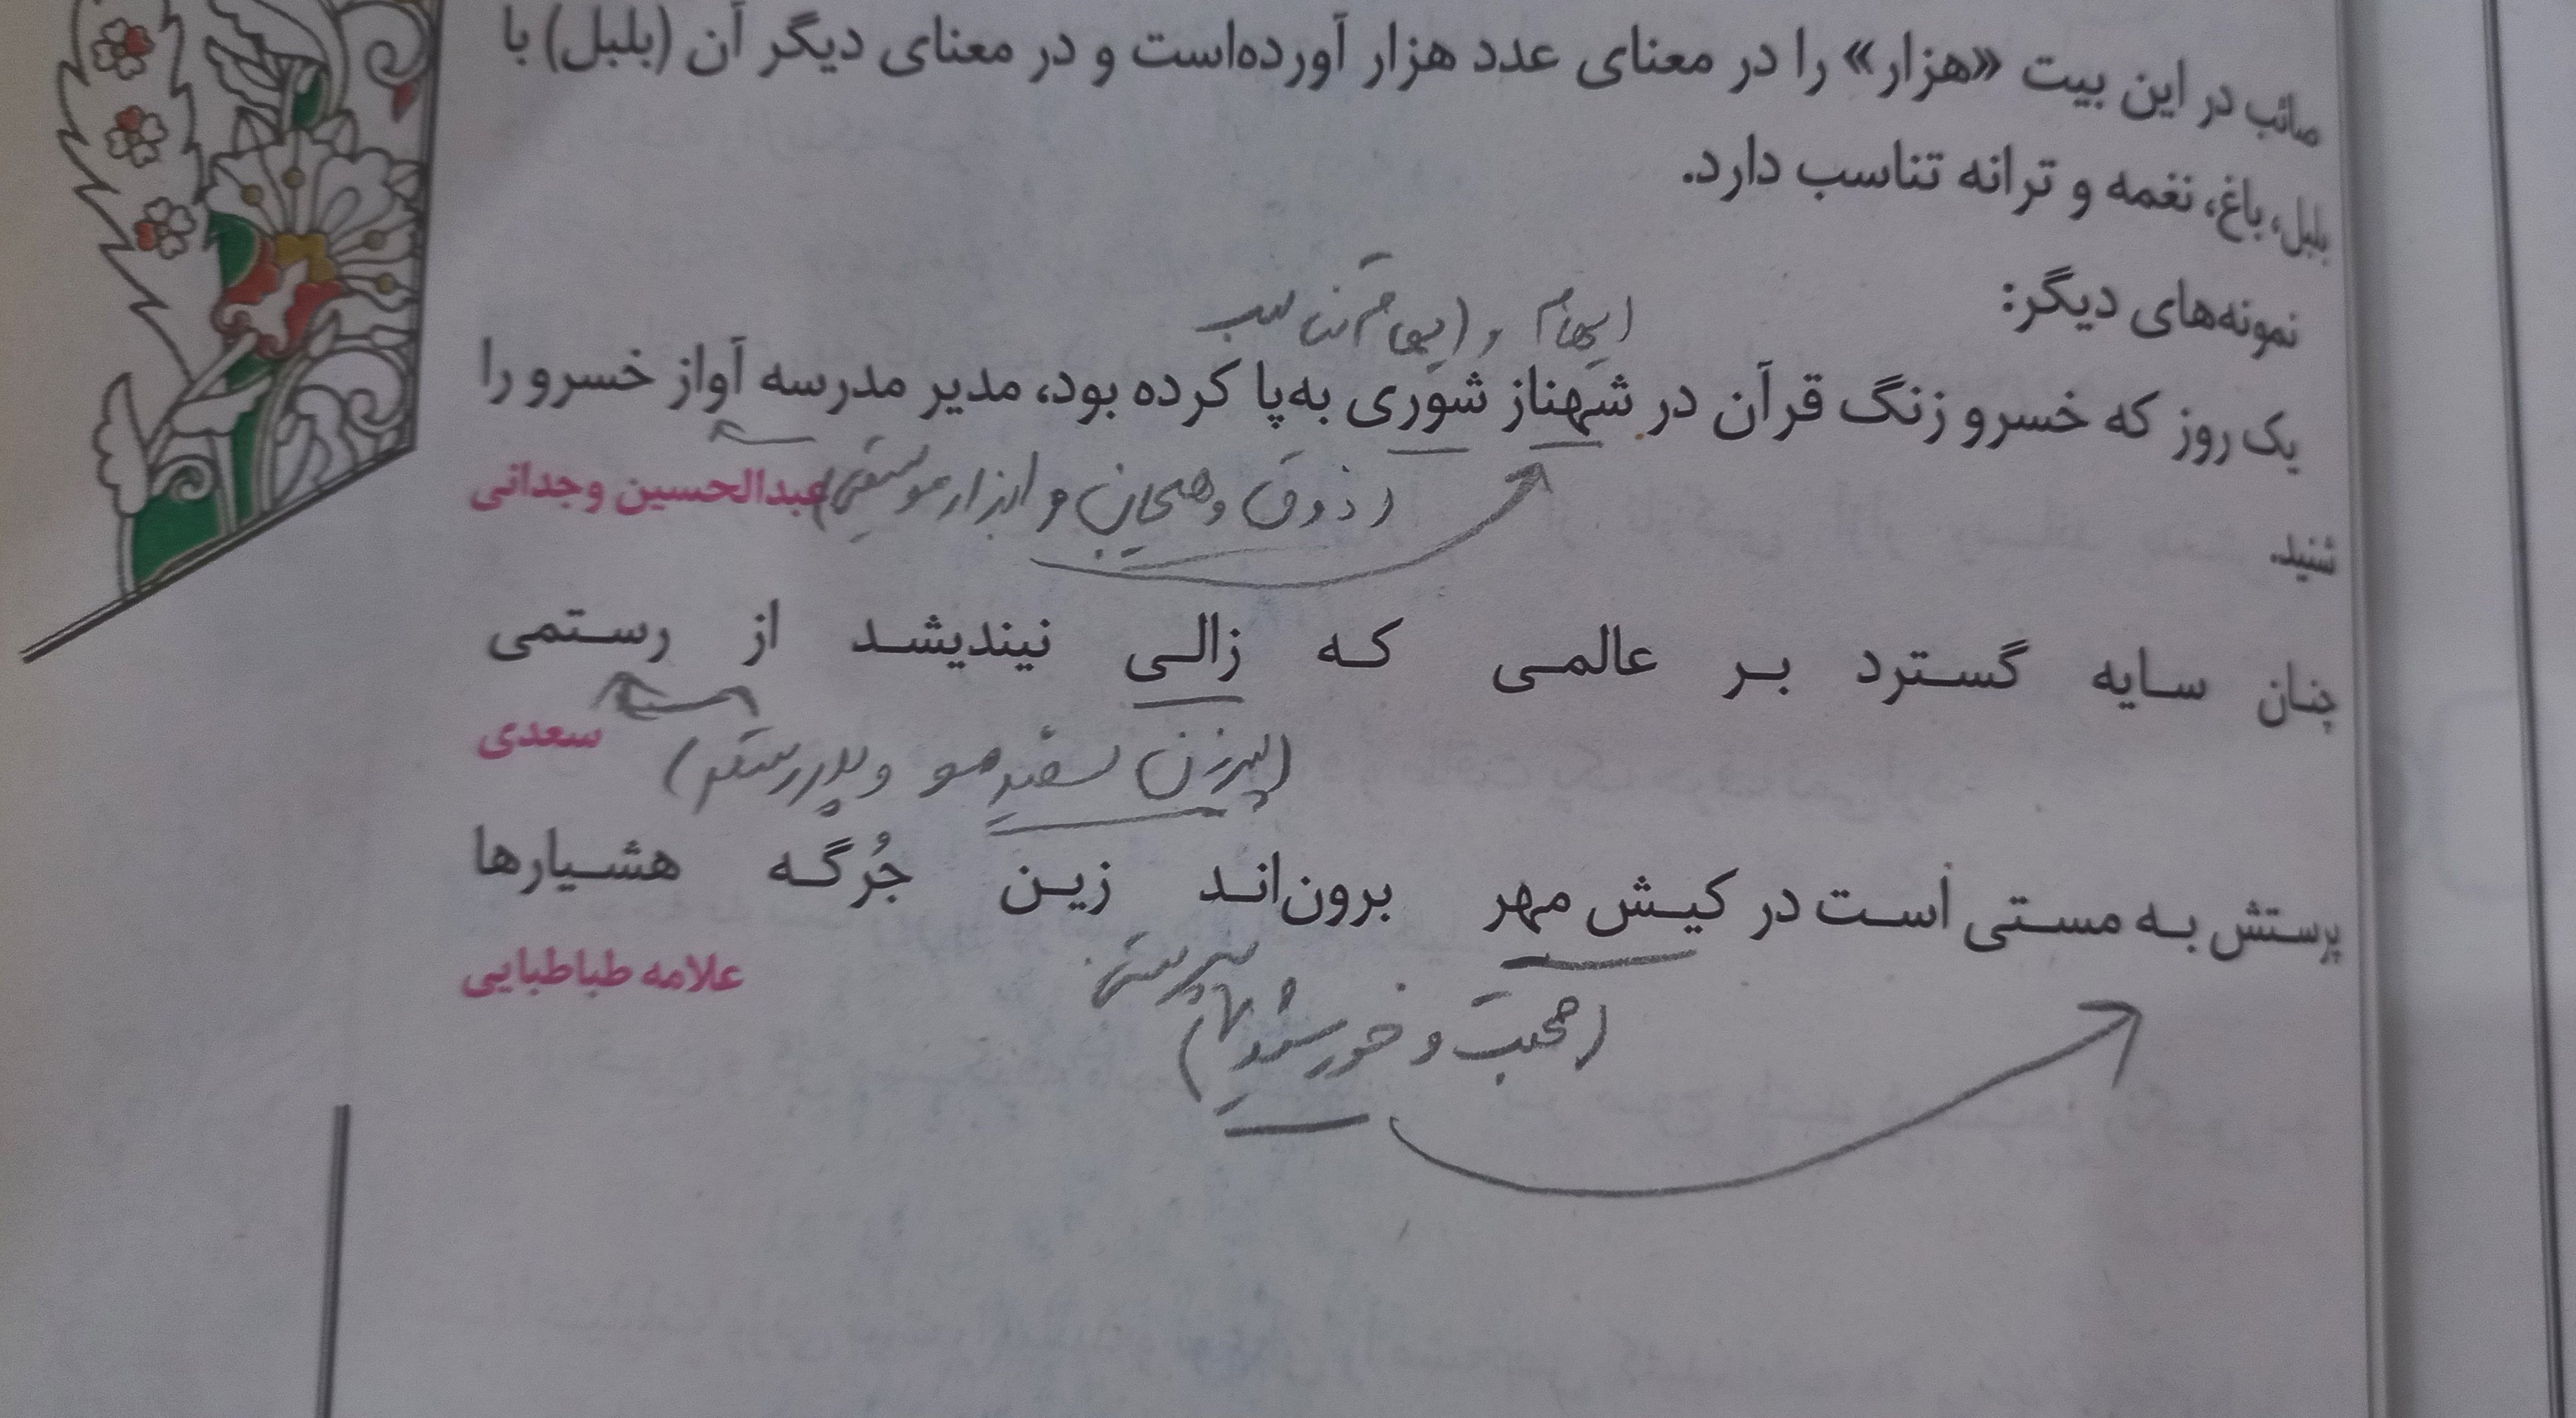 صائب در این بیت «هزار» را در معنای عدد هزار آورده‌است و در معنای دیگر آن (بلبل) با
بلبل، باغ، نغمه و ترانه تناسب دارد.
نمونه‌های دیگر:
ایهام و ایهام تناسب
یک روز که خسرو زنگ قرآن در شهناز شوری به‌پا کرده بود، مدیر مدرسه آواز خسرو را
(ذوق و هیجان و ابزار موسیقی) عبدالحسین وجدانی
شنید.
چنان سایه گسترد بر عالمی که زالی نیندیشد از رستمی
سعدی
(پیرزن سفیدمو و پدر رستم)
پرستش به مستی است در کیش مهر برون‌اند زین جُرگه هشیارها
علامه طباطبایی
(محبت و خورشید)